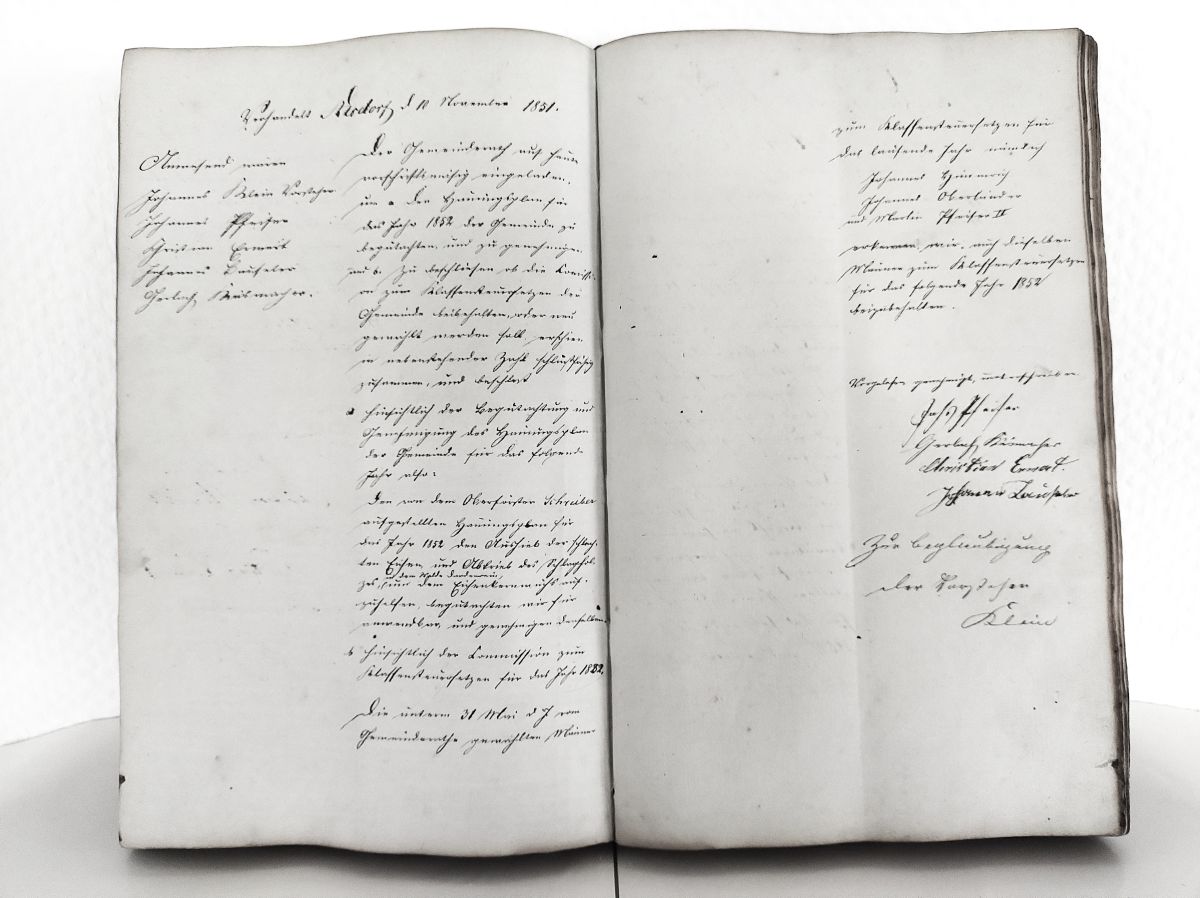 Verhandelt Alsdorf d 10 November 1851.
Anwesend waren
Johannes Klein Vorsteher
Johannes Pfeifer
Christian Ermert
Johannes
Gerlach
Der Gemeinderath auf heute
vorschriftsmäsig eingeladen,
um a den Hauungsplan für
das Jahr 1852 der Gemeinde zu
begutachten, und zu genehmigen
und b. zu beschlusen ob die Comissi-
on zum Klassensteuersetzen der
Gemeinde beibehalten, oder neu
gewählt werden soll, erschien
in nebenstehender Zahl schlusfähig
zusammen, und beschlest
a hinsichtlich der Begutachtung und
Genehmigung des Hauungsplan
der Gemeinde für das folgende
Jahr also:
Den von dem Oberförster Schreiber
aufgestellten Hauungsplan für
das Jahr 1852 den Aushieb der schlech-
ten Eichen, und Abtrieb des Schlaghol-
zes, und dem Eichenkernwuchs auf-
zuhelfen, begutachten wir für
anwendbar, und genehmigen denselben.
b hinsichtlich der Commission zum
Klassensteuersetzen für das Jahr 1852.
Die unterm 31 Mai d J vom
Gemeinderathe gewählten Männer
zum Klassensteuersetzen für
das laufende Jahr nämlich
Johannes
Johannes Oberländer
und Martin Pfeifer II
erkennen wir, auch dieselben
Männer zum Klassensteuersetzen
für das folgende Jahr 1852
beizubehalten.
Vorgelesen genehmigt, unterschrieben
Johs Pfeifer
Gerlach
Christian Ermert
Johannes
Zur Beglaubigung
der Vorsteher
Klein